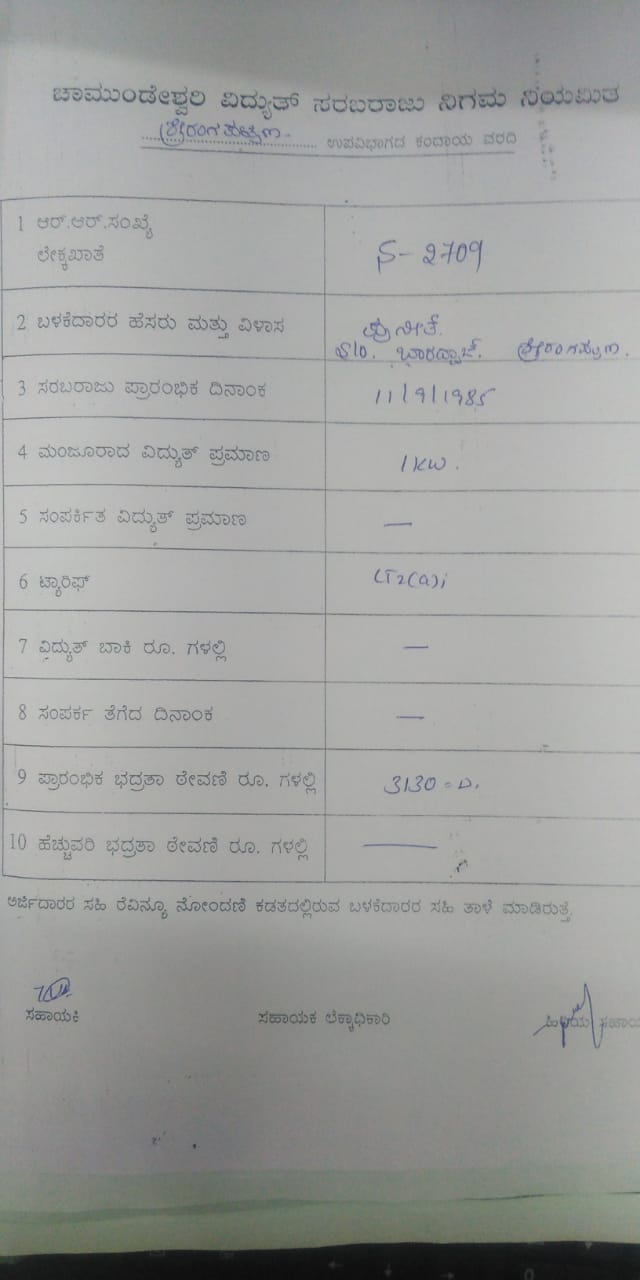 ಚಾಮುಂಡೇಶ್ವರಿ ವಿದ್ಯುತ್ ಸರಬರಾಜು ನಿಗಮ ನಿಯಮಿತ
ಶ್ರೀರಂಗಪಟ್ಟಣ ಉಪವಿಭಾಗದ ಕಂದಾಯ ವರದಿ
1 ಆರ್.ಆರ್.ಸಂಖ್ಯೆ
ಲೇಕ್ಕಖಾತೆ S-2709
2 ಬಳಕೆದಾರರ ಹೆಸರು ಮತ್ತು ವಿಳಾಸ
S/o. ಶ್ರೀರಂಗಪಟ್ಟಣ.
3 ಸರಬರಾಜು ಪ್ರಾರಂಭಿಕ ದಿನಾಂಕ 11/9/1985
4 ಮಂಜೂರಾದ ವಿದ್ಯುತ್ ಪ್ರಮಾಣ 1KW.
5 ಸಂಪರ್ಕಿತ ವಿದ್ಯುತ್ ಪ್ರಮಾಣ —
6 ಟ್ಯಾರಿಫ್ LT2(a)i
7 ವಿದ್ಯುತ್ ಬಾಕಿ ರೂ. ಗಳಲ್ಲಿ —
8 ಸಂಪರ್ಕ ತೆಗೆದ ದಿನಾಂಕ —
9 ಪ್ರಾರಂಭಿಕ ಭದ್ರತಾ ಠೇವಣಿ ರೂ. ಗಳಲ್ಲಿ 3130=
10 ಹೆಚ್ಚುವರಿ ಭದ್ರತಾ ಠೇವಣಿ ರೂ. ಗಳಲ್ಲಿ —
ಅರ್ಜಿದಾರರ ಸಹಿ ರೆವಿನ್ಯೂ ನೋಂದಣಿ ಕಡತದಲ್ಲಿರುವ ಬಳಕೆದಾರರ ಸಹಿ ತಾಳೆ ಮಾಡಿರುತ್ತೆ.
ಸಹಾಯಕಿ ಸಹಾಯಕ ಲೆಕ್ಕಾಧಿಕಾರಿ ಹಿರಿಯ